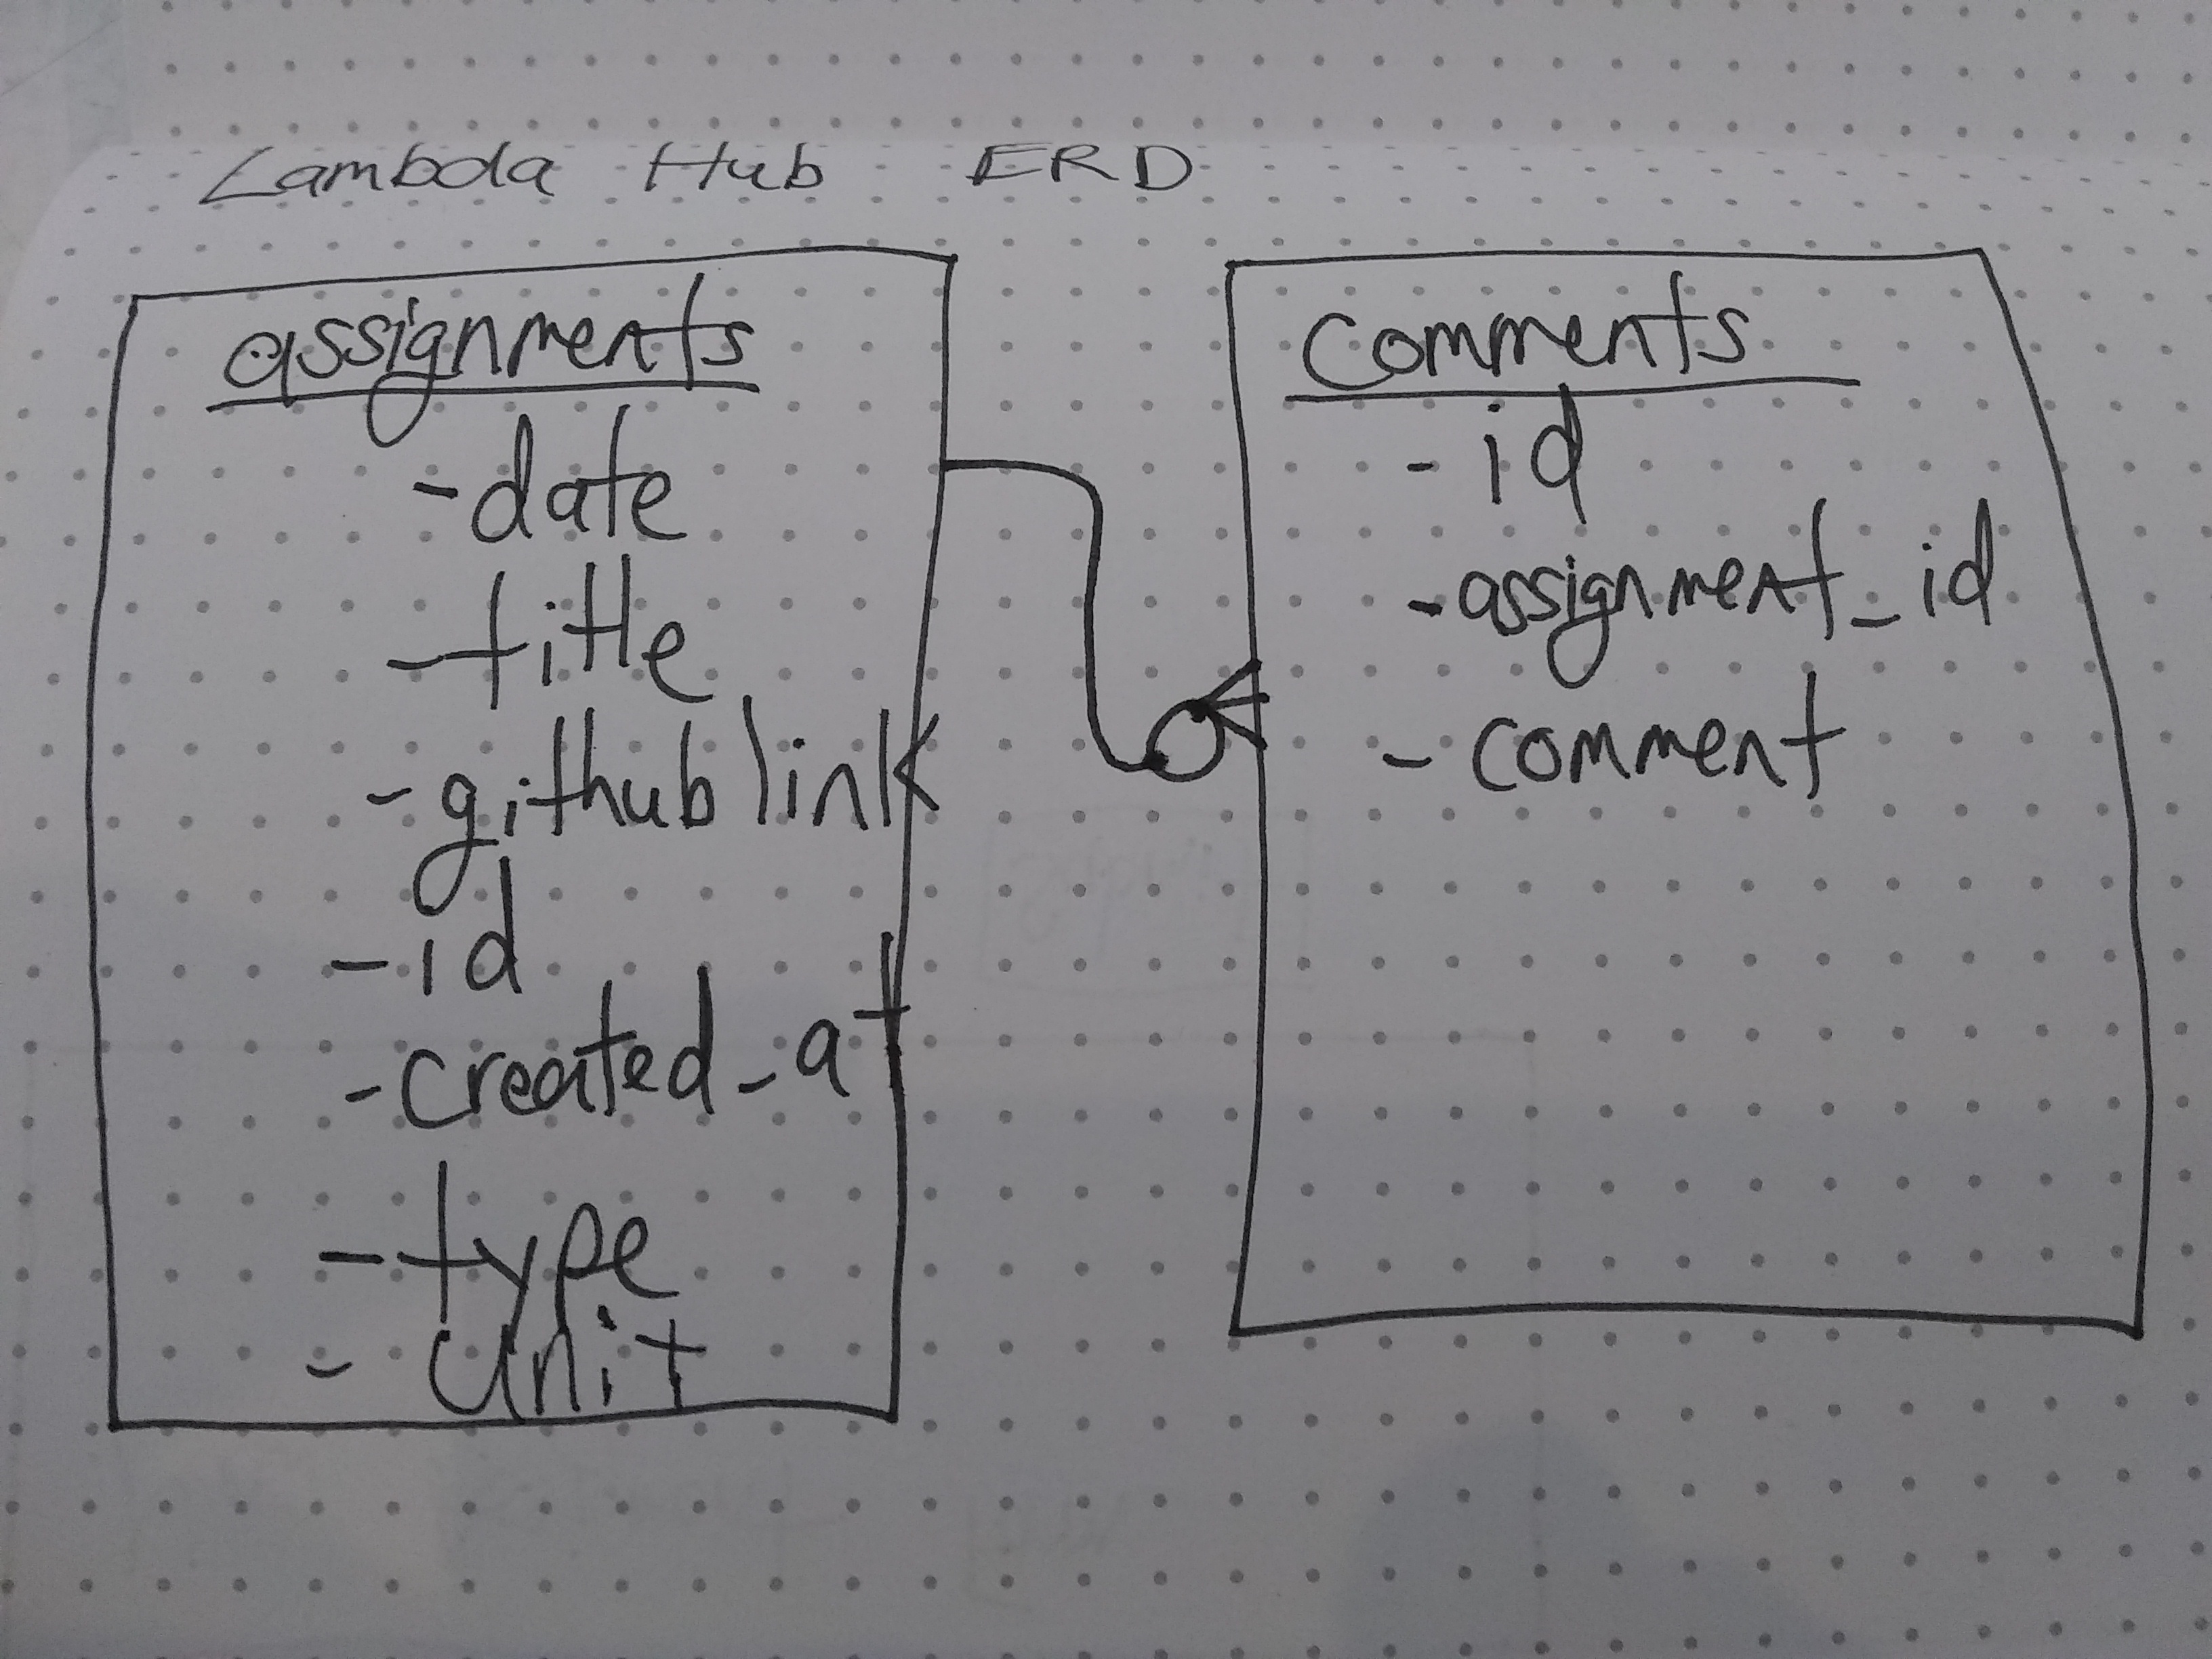 Lambda Hub ERD
assignments
- date
- title
- github link
- id
- created_at
- type
- unit
comments
- id
- assignment_id
- comment